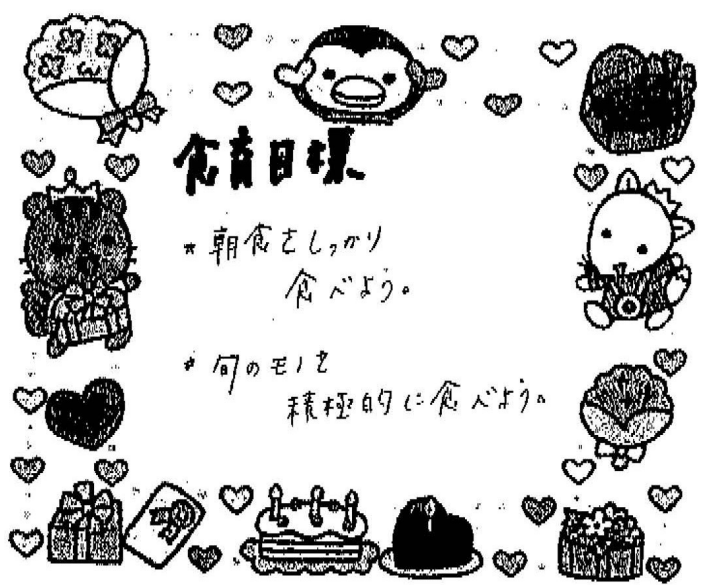 食育目標
* 朝食をしっかり
食べよう。
* 旬のモノを
積極的に食べよう。